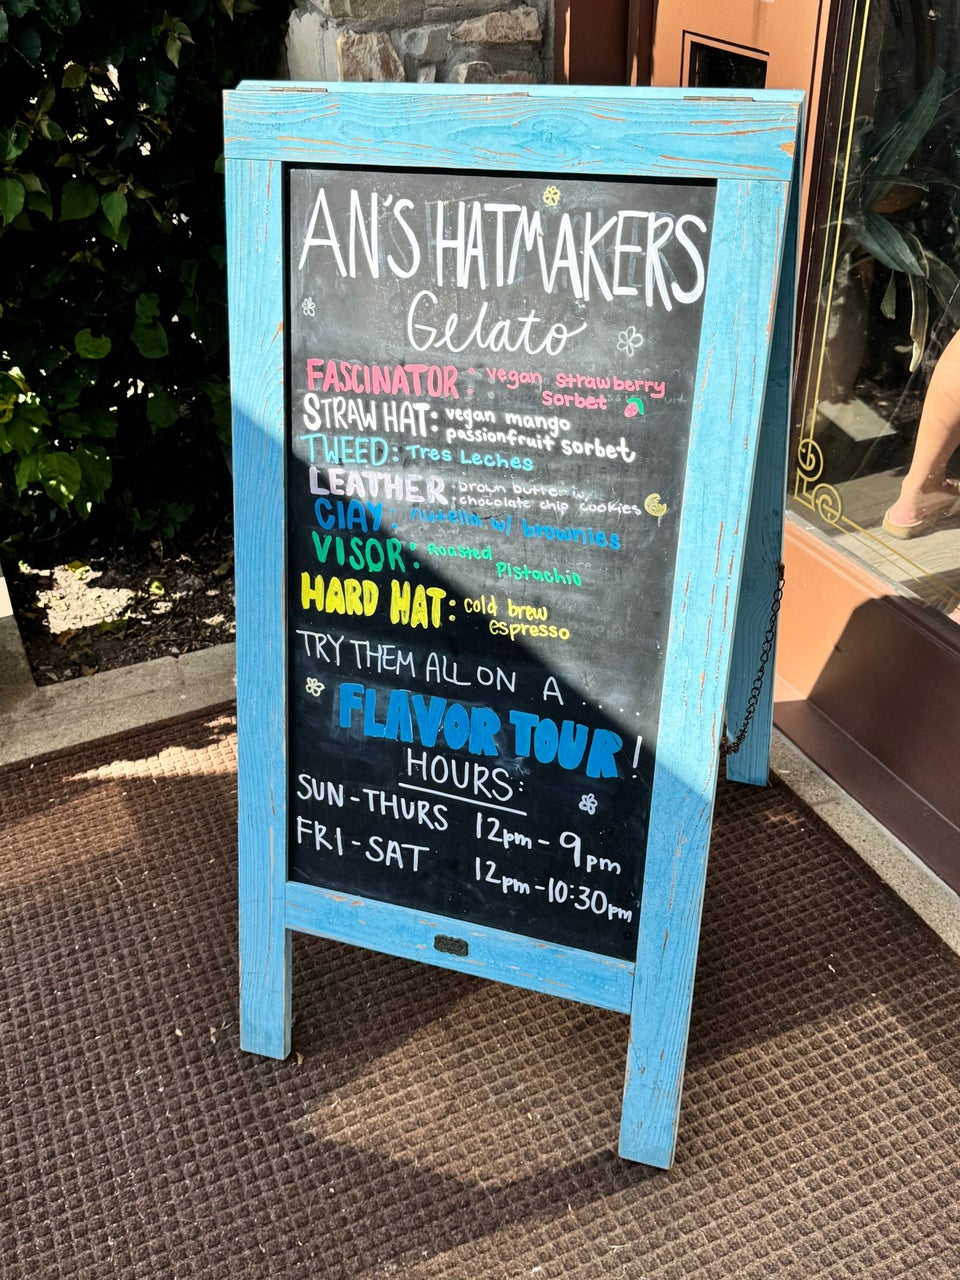 AN'S HATMAKERS
Gelato
FASCINATOR: vegan strawberry
sorbet
STRAW HAT: vegan mango
passionfruit sorbet
TWEED: Tres Leches
LEATHER: brown butter w/
chocolate chip cookies
ClAY: nutella w/ brownies
VISOR: Roasted
Pistachio
HARD HAT: cold brew
espresso
TRY THEM ALL ON A ....
FLAVOR TOUR!
HOURS:
SUN-THURS 12pm-9pm
FRI-SAT 12pm-10:30pm